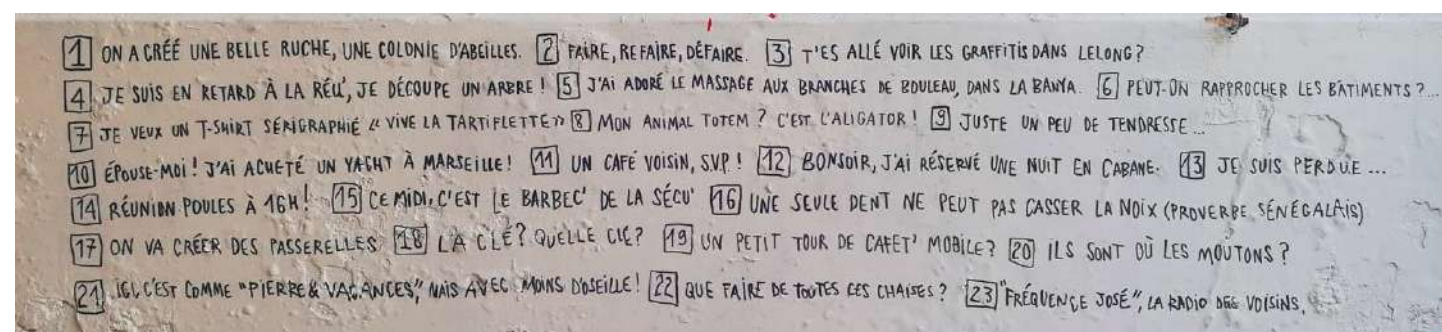 1 ON A CRÉÉ UNE BELLE RUCHE, UNE COLONIE D'ABEILLES. 2 FAIRE, REFAIRE, DÉFAIRE. 3 T'ES ALLÉ VOIR LES GRAFFITIS DANS LELONG?
4 JE SUIS EN RETARD À LA RÉU', JE DÉCOUPE UN ARBRE! 5 J'AI ADORÉ LE MASSAGE AUX BRANCHES DE BOULEAU, DANS LA BANYA. 6 PEUT-ON RAPPROCHER LES BÂTIMENTS?...
7 JE VEUX UN T-SHIRT SÉRIGRAPHIÉ "VIVE LA TARTIFLETTE" 8 MON ANIMAL TOTEM? C'EST L'ALIGATOR! 9 JUSTE UN PEU DE TENDRESSE...
10 ÉPOUSE-MOI! J'AI ACHETÉ UN YACHT À MARSEILLE! 11 UN CAFÉ VOISIN, S.V.P! 12 BONSOIR, J'AI RÉSERVÉ UNE NUIT EN CABANE. 13 JE SUIS PERDUE...
14 RÉUNION POULES À 16H! 15 CE MIDI, C'EST LE BARBEC' DE LA SÉCU' 16 UNE SEULE DENT NE PEUT PAS CASSER LA NOIX (PROVERBE SÉNÉGALAIS)
17 ON VA CRÉER DES PASSERELLES 18 LA CLÉ? QUELLE CLÉ? 19 UN PETIT TOUR DE CAFET' MOBILE? 20 ILS SONT OÙ LES MOUTONS?
21 ICI, C'EST COMME "PIERRE & VACANCES", MAIS AVEC MOINS D'OSEILLE! 22 QUE FAIRE DE TOUTES CES CHAISES? 23 "FRÉQUENCE JOSÉ", LA RADIO DES VOISINS.